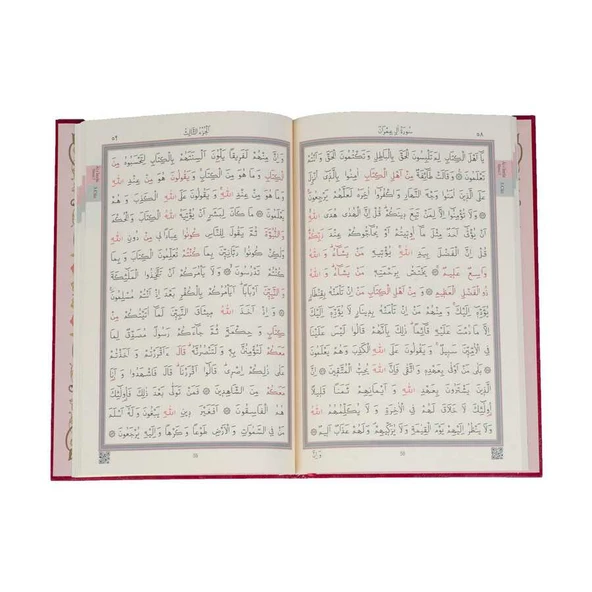 ٥٨
سُورَةُ اٰلِ عِمْرٰنَ
يَٓا اَهْلَ الْكِتَابِ لِمَ تَلْبِسُونَ الْحَقَّ بِالْبَاطِلِ وَتَكْتُمُونَ الْحَقَّ وَاَنْتُمْ
تَعْلَمُونَ ۞ وَقَالَتْ طَٓائِفَةٌ مِنْ اَهْلِ الْكِتَابِ اٰمِنُوا بِالَّذ۪ٓي اُنْزِلَ
عَلَى الَّذ۪ينَ اٰمَنُوا وَجْهَ النَّهَارِ وَاكْفُرُٓوا اٰخِرَهُ لَعَلَّهُمْ يَرْجِعُونَ
۞ وَلَا تُؤْمِنُٓوا اِلَّا لِمَنْ تَبِعَ د۪ينَكُمْ قُلْ اِنَّ الْهُدٰى هُدَى اللّٰهِ
اَنْ يُؤْتٰٓى اَحَدٌ مِثْلَ مَٓا اُو۫ت۪يتُمْ اَوْ يُحَٓاجُّوكُمْ عِنْدَ رَبِّكُمْ
قُلْ اِنَّ الْفَضْلَ بِيَدِ اللّٰهِ يُؤْت۪يهِ مَنْ يَشَٓاءُ وَاللّٰهُ
وَاسِعٌ عَل۪يمٌ ۞ يَخْتَصُّ بِرَحْمَتِه۪ مَنْ يَشَٓاءُ وَاللّٰهُ
ذُو الْفَضْلِ الْعَظ۪يمِ ۞ وَمِنْ اَهْلِ الْكِتَابِ مَنْ اِنْ تَأْمَنْهُ بِقِنْطَارٍ
يُؤَدِّه۪ٓ اِلَيْكَ وَمِنْهُمْ مَنْ اِنْ تَأْمَنْهُ بِد۪ينَارٍ لَا يُؤَدِّه۪ٓ اِلَيْكَ
اِلَّا مَا دُمْتَ عَلَيْهِ قَٓائِمًا ذٰلِكَ بِاَنَّهُمْ قَالُوا لَيْسَ عَلَيْنَا
فِي الْاُمِّيّ۪نَ سَب۪يلٌ وَيَقُولُونَ عَلَى اللّٰهِ الْكَذِبَ وَهُمْ يَعْلَمُونَ
۞ بَلٰى مَنْ اَوْفٰى بِعَهْدِه۪ وَاتَّقٰى فَاِنَّ اللّٰهَ يُحِبُّ الْمُتَّق۪ينَ ۞ اِنَّ
الَّذ۪ينَ يَشْتَرُونَ بِعَهْدِ اللّٰهِ وَاَيْمَانِهِمْ ثَمَنًا قَل۪يلًا
اُو۬لٰٓئِكَ لَا خَلَاقَ لَهُمْ فِي الْاٰخِرَةِ وَلَا يُكَلِّمُهُمُ اللّٰهُ
وَلَا يَنْظُرُ اِلَيْهِمْ يَوْمَ الْقِيٰمَةِ وَلَا يُزَكّ۪يهِمْ وَلَهُمْ عَذَابٌ اَل۪يمٌ ۞
وَاِنَّ
اَلْجُزْءُ الثَّالِثُ
٥٩
وَاِنَّ مِنْهُمْ لَفَر۪يقًا يَلْوُ۫نَ اَلْسِنَتَهُمْ بِالْكِتَابِ لِتَحْسَبُوهُ مِنَ
الْكِتَابِ وَمَا هُوَ مِنَ الْكِتَابِ وَيَقُولُونَ هُوَ مِنْ عِنْدِ اللّٰهِ
وَمَا هُوَ مِنْ عِنْدِ اللّٰهِ وَيَقُولُونَ عَلَى اللّٰهِ الْكَذِبَ وَهُمْ
يَعْلَمُونَ ۞ مَا كَانَ لِبَشَرٍ اَنْ يُؤْتِيَهُ اللّٰهُ الْكِتَابَ وَالْحُكْمَ
وَالنُّبُوَّةَ ثُمَّ يَقُولَ لِلنَّاسِ كُونُوا عِبَادًا ل۪ي مِنْ دُونِ اللّٰهِ
وَلٰكِنْ كُونُوا رَبَّانِيّ۪نَ بِمَا كُنْتُمْ تُعَلِّمُونَ الْكِتَابَ وَبِمَا
كُنْتُمْ تَدْرُسُونَ ۞ وَلَا يَأْمُرَكُمْ اَنْ تَتَّخِذُوا الْمَلٰٓئِكَةَ
وَالنَّبِيّ۪نَ اَرْبَابًا اَيَأْمُرُكُمْ بِالْكُفْرِ بَعْدَ اِذْ اَنْتُمْ مُسْلِمُونَ
۞ وَاِذْ اَخَذَ اللّٰهُ م۪يثَاقَ النَّبِيّ۪نَ لَمَٓا اٰتَيْتُكُمْ مِنْ
كِتَابٍ وَحِكْمَةٍ ثُمَّ جَٓاءَكُمْ رَسُولٌ مُصَدِّقٌ لِمَا
مَعَكُمْ لَتُؤْمِنُنَّ بِه۪ وَلَتَنْصُرُنَّهُ قَالَ ءَاَقْرَرْتُمْ وَاَخَذْتُمْ
عَلٰى ذٰلِكُمْ اِصْر۪ي قَالُٓوا اَقْرَرْنَا قَالَ فَاشْهَدُوا وَاَنَا۬
مَعَكُمْ مِنَ الشَّاهِد۪ينَ ۞ فَمَنْ تَوَلّٰى بَعْدَ ذٰلِكَ فَاُو۬لٰٓئِكَ
هُمُ الْفَاسِقُونَ ۞ اَفَغَيْرَ د۪ينِ اللّٰهِ يَبْغُونَ وَلَهُٓ اَسْلَمَ
مَنْ فِي السَّمٰوَاتِ وَالْاَرْضِ طَوْعًا وَكَرْهًا وَاِلَيْهِ يُرْجَعُونَ ۞